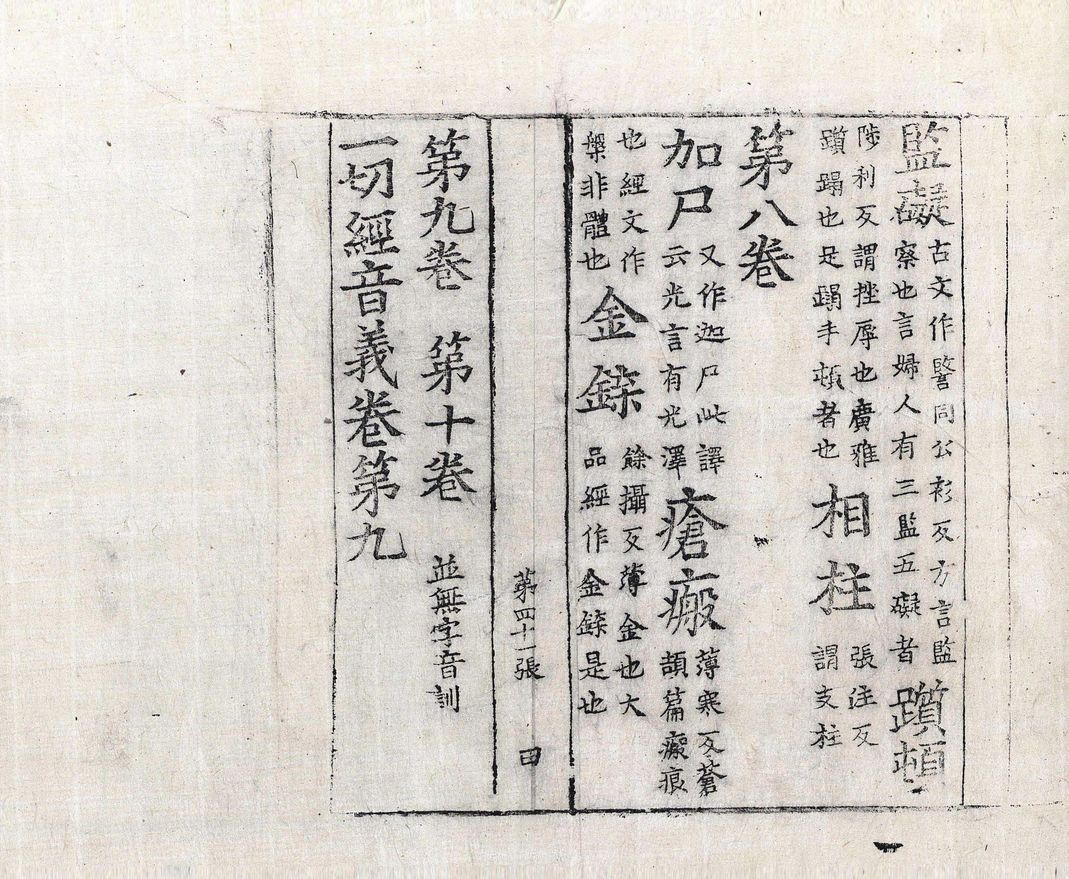 監礙古文作譥同公衫反方言監
察也言婦人有三監五礙者躓頓
陟利反謂挫辱也廣雅
躓蹋也足蹋手頓者也相柱張注反
謂支柱
第八卷
加尸又作迦尸此譯
云光言有光澤瘡瘢薄寒反蒼
頡篇瘢痕
也經文作
槃非體也金鍒餘攝反薄金也大
品經作金鍱是也
第四十一張 田
第九卷 第十卷 並無字音訓
一切經音義卷第九